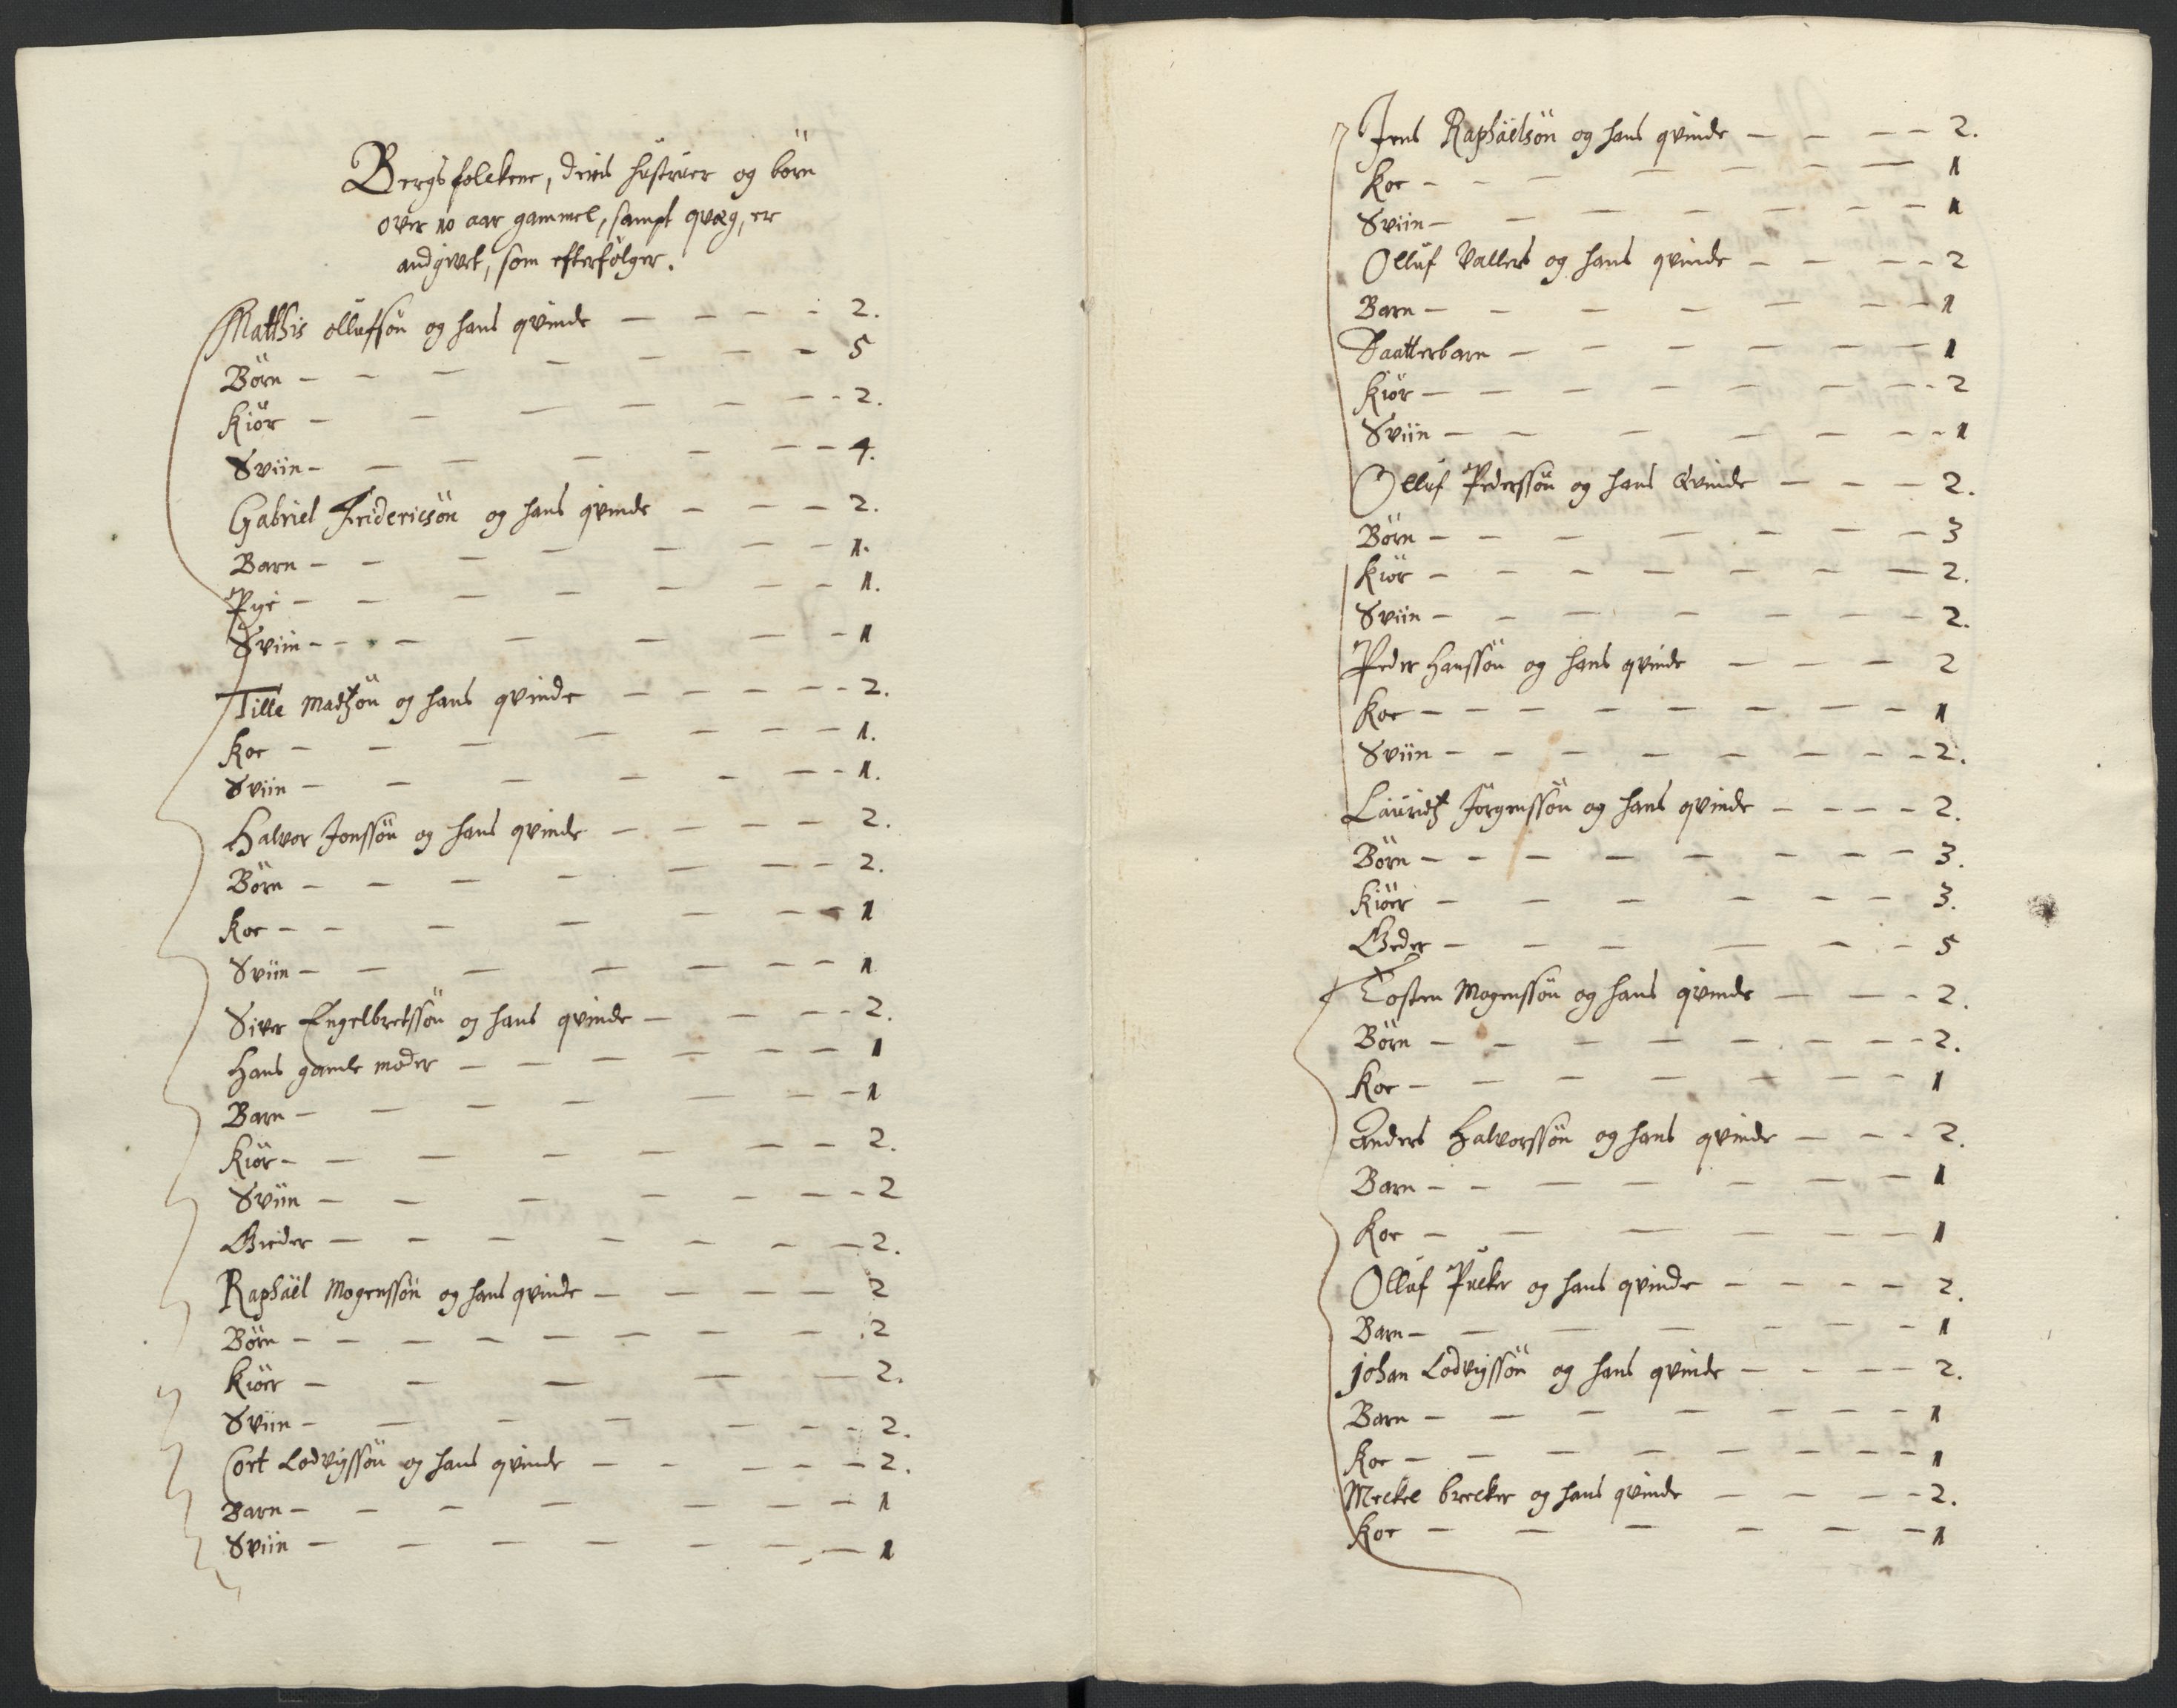 Bergsfolckene, deris hüstrüer og börn
over 10 aar gammel, sampt qvæg, er
andgivet, som efterfölger.
Matthis ollüfsön og hans qvinde — — — — 2.
Börn — — — — — — 5
Kiör — — — — — — 2.
Sviin — — — — — — 4.
Gabriel Fridericsön og hans qvinde — — — 2.
Barn — — — — — — 1.
Pige — — — — — — 1.
Sviin — — — — — — 1
Tille Madtzön og hans qvinde — — — — — 2.
Koe — — — — — — 1.
Sviin — — — — — — 1.
Halvor Jonssön og hans qvinde — — — — 2.
Börn — — — — — — 2.
Koe — — — — — — 1
Sviin — — — — — — 1
Siver Engelbretssön og hans qvinde — — — — 2.
Hans gamle moder — — — — — — 1
Barn — — — — — — 1
Kiör — — — — — — 2.
Sviin — — — — — — 2
Gieder — — — — — — 2.
Raphäel Mogenssön og hans qvinde — — — — 2
Börn — — — — — — 2
Kiöer — — — — — 2.
Sviin — — — — — — 2.
Cort Lodvigssön og hans qvinde — — — — — 2.
Barn — — — — — — 1
Sviin — — — — — — 1
Jens Raphäelsön og hans qvinde — — — — 2.
Koe — — — — — — 1
Sviin — — — — — — 1
Ollüf Vallers og hans qvinde — — — — 2
Barn — — — — — — 1
Daatterbarn — — — — — — 1
Kiör — — — — — — 2
Sviin — — — — — — 1
Ollüf Pederssön og hans Qvinde — — — 2.
Börn — — — — — — 3
Kiör — — — — — — 2.
Sviin — — — — — — 2.
Peder Hanssön og hans qvinde — — — 2
Koe — — — — — — 1
Sviin — — — — — — 2.
Lauridtz Jörgenssön og hans qvinde — — — — 2.
Börn — — — — — — 3.
Kiöer — — — — — — 3.
Geder — — — — — — 5
Tosten Mogenssön og hans qvinde — — — 2.
Börn — — — — — — 2.
Koe — — — — — — 1
Anders Halvorssön og hans qvinde — — — 2.
Barn — — — — — — 1
Koe — — — — — — 1
Ollüf Pücker og hans qvinde — — — — 2.
Barn — — — — — — 1
Johan Lodvigssön og hans qvinde — — — — 2.
Barn — — — — — — 1
Koe — — — — — — 1
Meckel brecker og hans qvinde — — — — 2.
Koe — — — — — 1